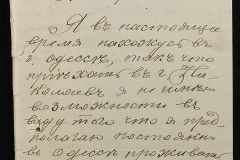 Я въ настоящее
время нахожусь въ
г. Одессѣ, такъ что
пріѣхать въ г. Ни-
колаевъ я не имѣю
возможности въ
виду того что я пред-
полагаю постоянно
въ Одессѣ проживать